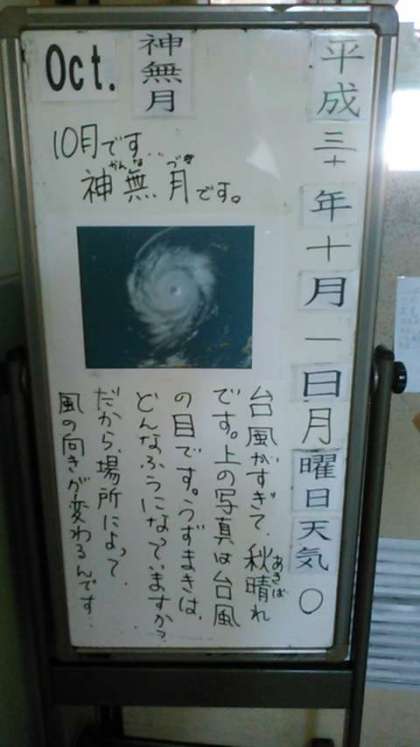 平成三十年十月一日月曜日天気〇
Oct.
神無月
10月です…
神無月です。
かんなづき
台風がすぎて、秋晴れ
あきば
です。上の写真は台風
の目です。うずまきは、
どんなふうになっていますか?
だから、場所によって
風の向きが変わるんです.